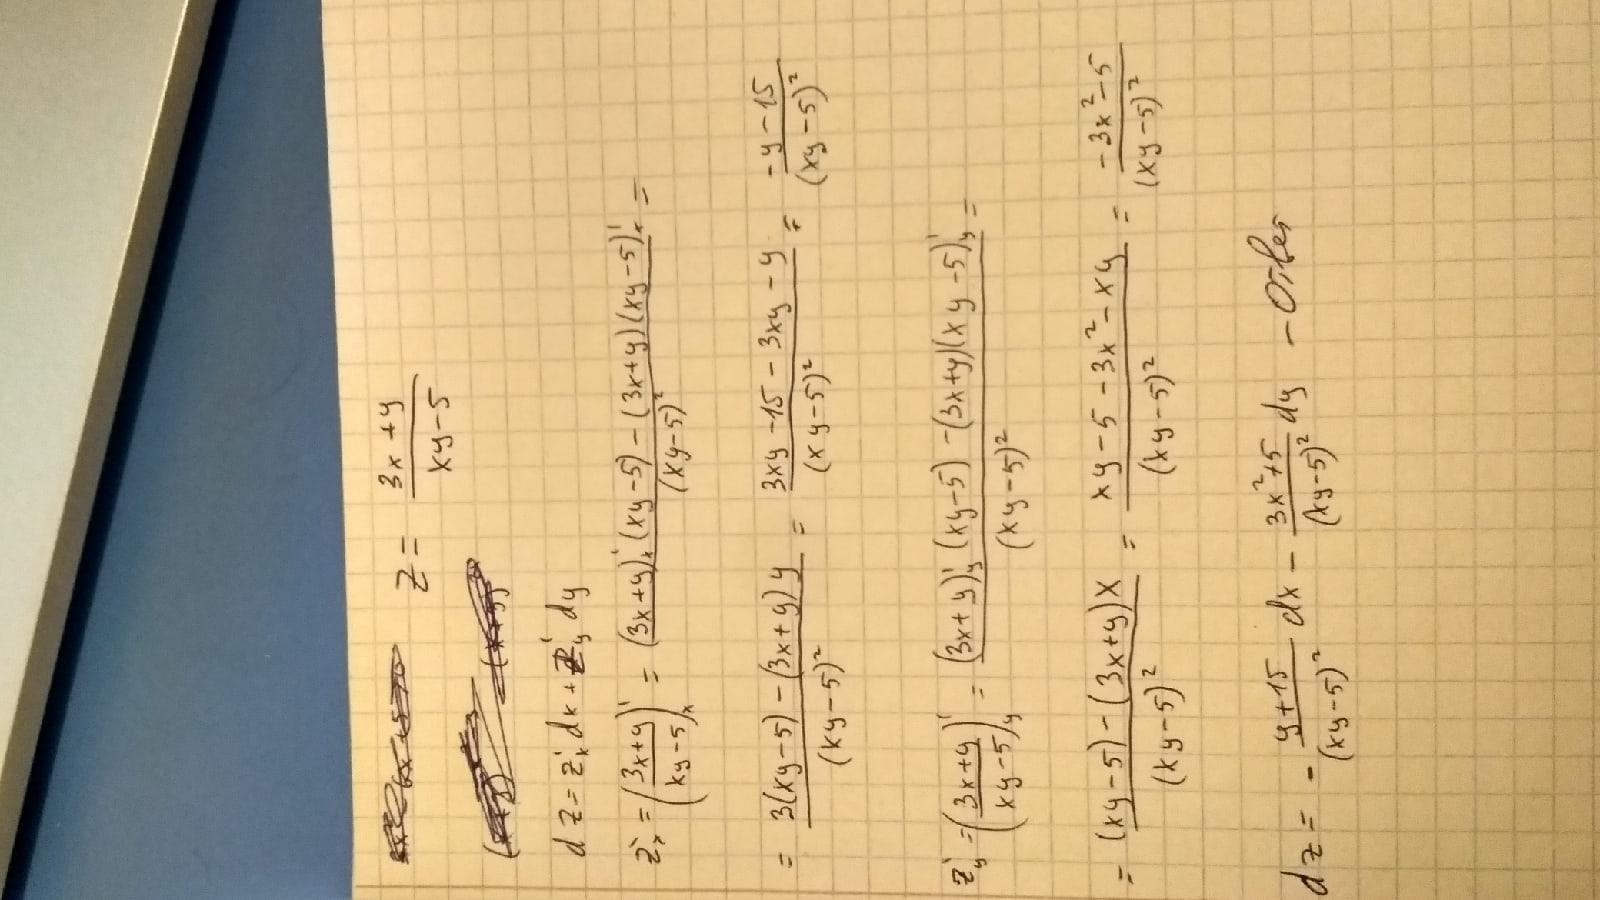 z = (3x + y)/(xy - 5)
dz = z'ₓ dx + z'ᵧ dy
z'ₓ = ((3x+y)/(xy-5))'ₓ = ((3x+y)'ₓ (xy-5) - (3x+y)(xy-5)'ₓ)/(xy-5)² =
= (3(xy-5) - (3x+y)y)/(xy-5)² = (3xy - 15 - 3xy - y)/(xy-5)² = (-y - 15)/(xy-5)²
z'ᵧ = ((3x+y)/(xy-5))'ᵧ = ((3x+y)'ᵧ (xy-5) - (3x+y)(xy-5)'ᵧ)/(xy-5)² =
= ((xy-5) - (3x+y)x)/(xy-5)² = (xy - 5 - 3x² - xy)/(xy-5)² = (-3x² - 5)/(xy-5)²
dz = - (y+15)/(xy-5)² dx - (3x²+5)/(xy-5)² dy - Ответ